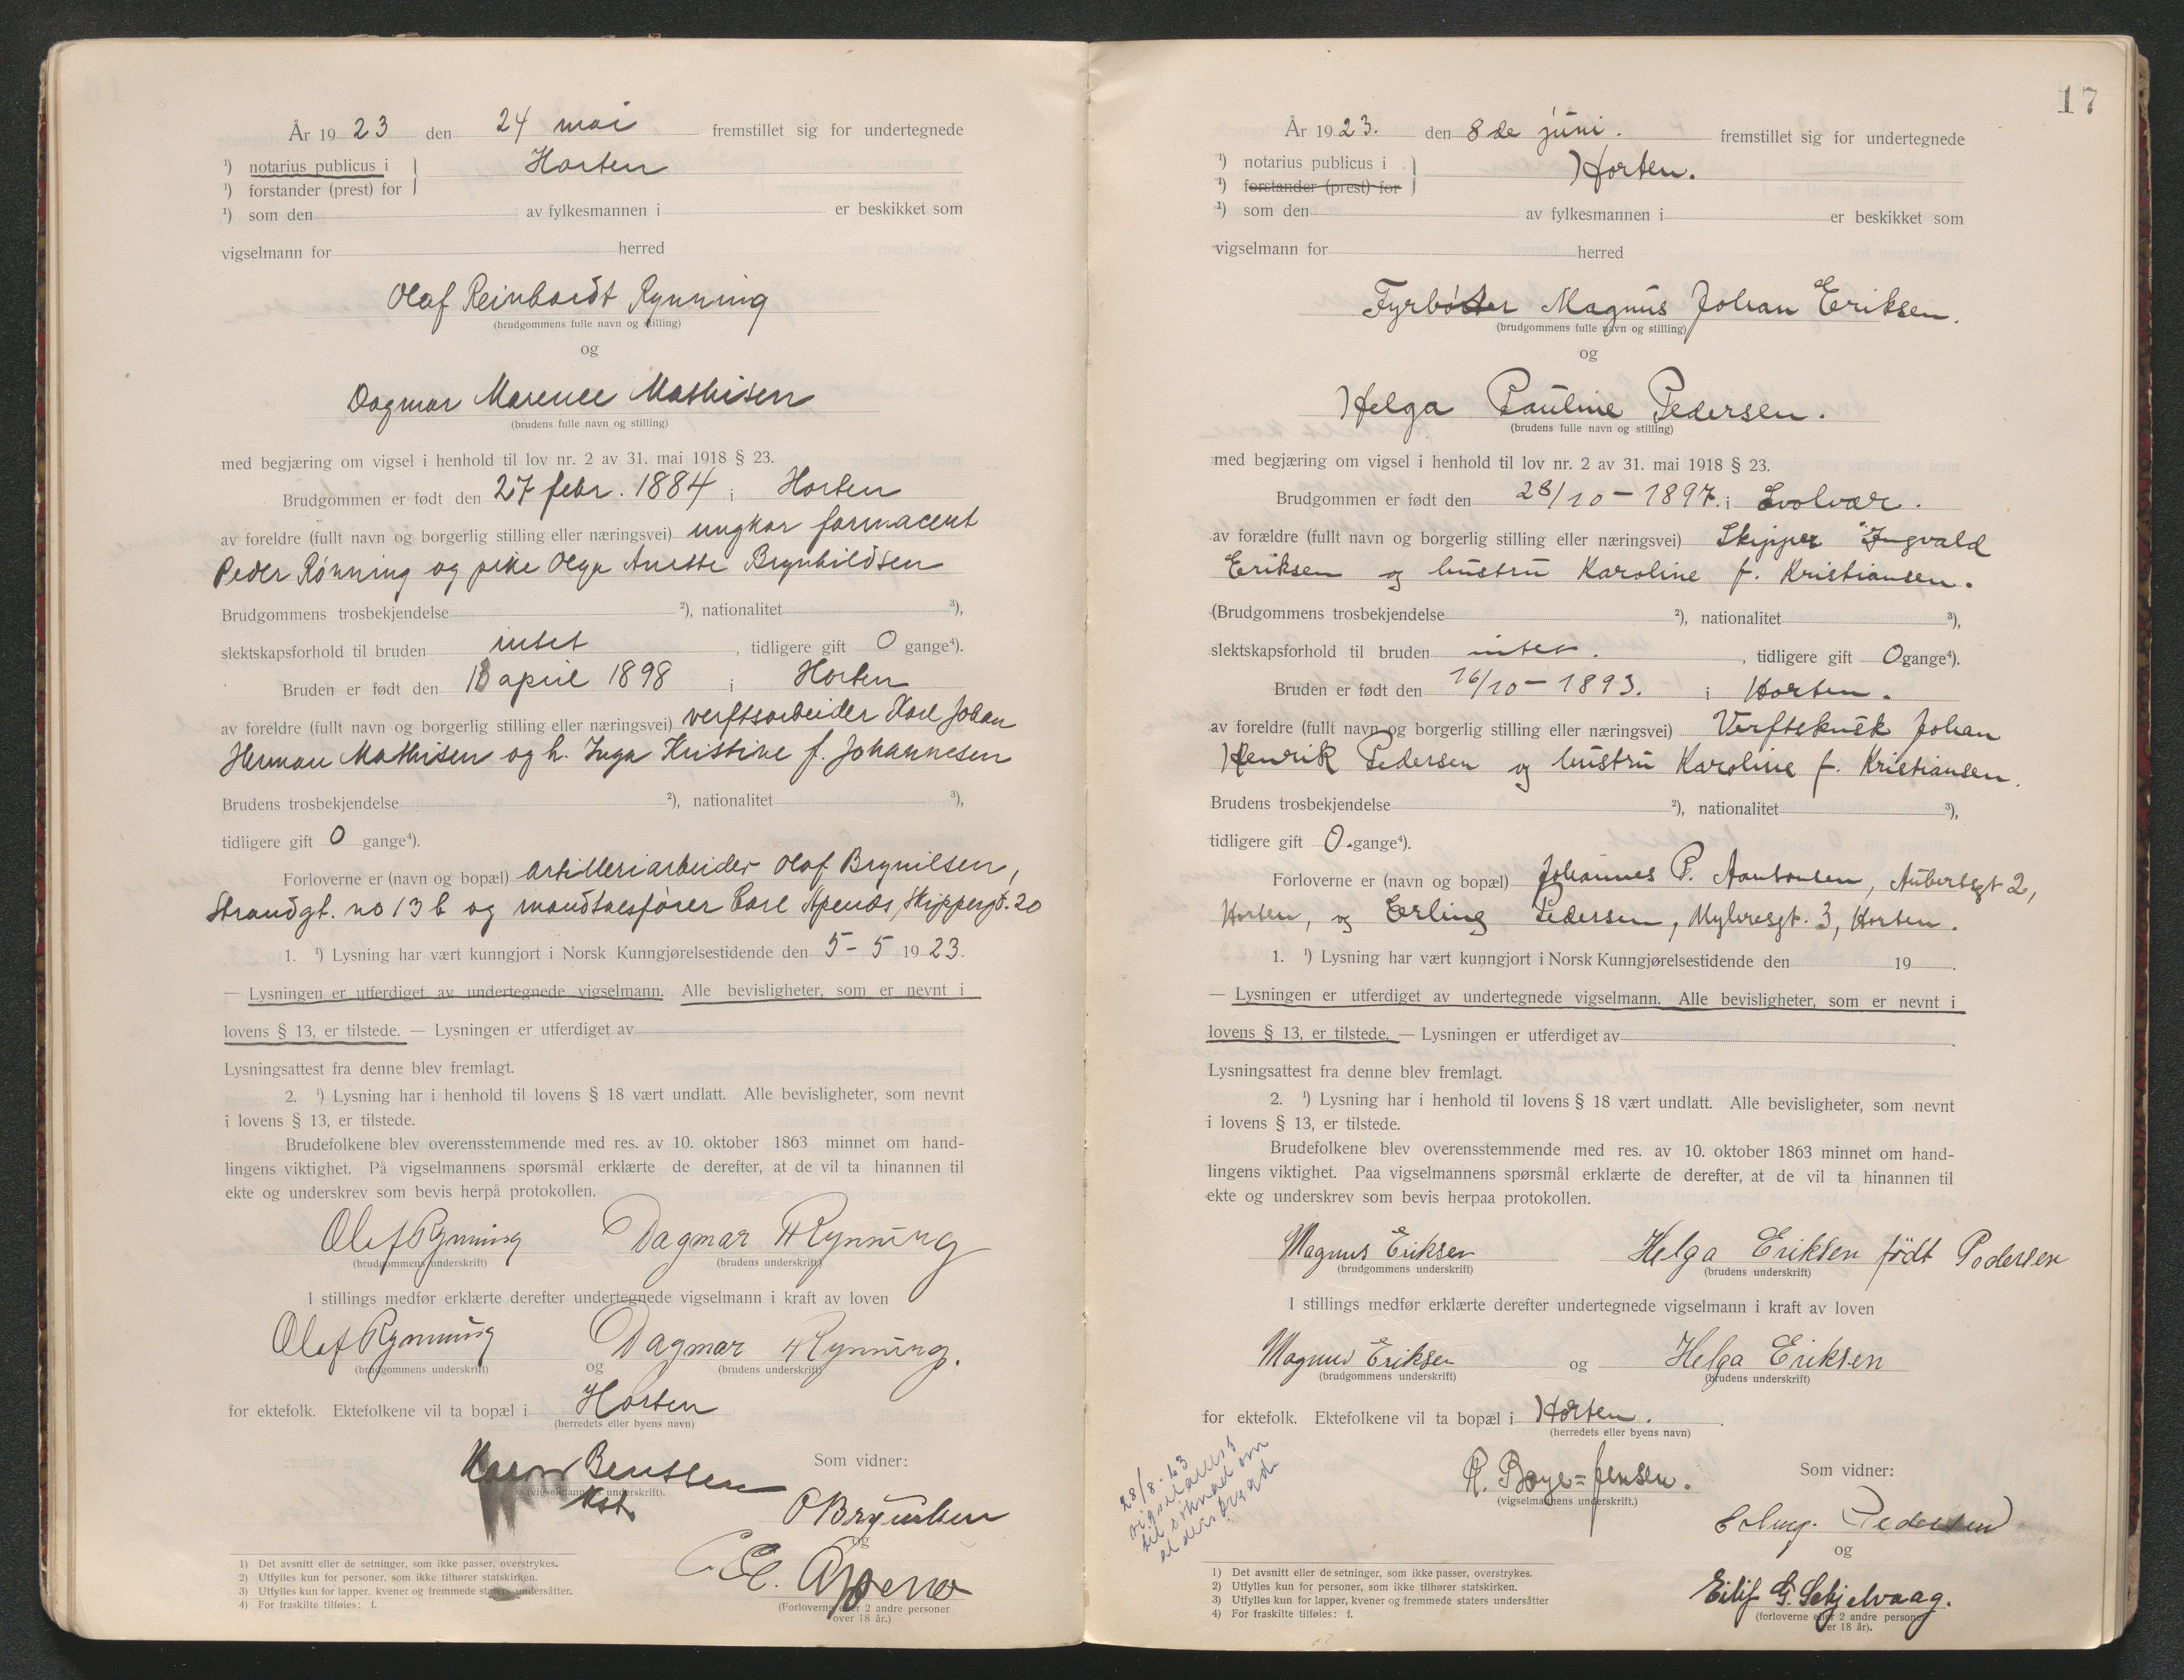 År 1923 den 24 mai fremstillet sig for undertegnede
¹) notarius publicus i Horten
¹) forstander (prest) for
¹) som den av fylkesmannen i er beskikket som
vigselmann for herred
Olaf Reinhardt Rynning
(brudgommens fulle navn og stilling)
og
Dagmar Marence Mathisen
(brudens fulle navn og stilling)
med begjæring om vigsel i henhold til lov nr. 2 av 31. mai 1918 § 23.
Brudgommen er født den 27 febr. 1884 i Horten
av foreldre (fullt navn og borgerlig stilling eller næringsvei) ungkar farmaceut
Peder Rönning og pike Olga Anette Brynhildsen
Brudgommens trosbekjendelse ²), nationalitet ³),
slektskapsforhold til bruden intet, tidligere gift 0 gange⁴).
Bruden er født den april 1898 i Horten
av foreldre (fullt navn og borgerlig stilling eller næringsvei) verftsarbeider Karl Johan
Herman Mathisen og h. Inga Kristine f. Johannesen
Brudens trosbekjendelse ²), nationalitet ³),
tidligere gift 0 gange⁴).
Forloverne er (navn og bopæl) artilleriarbeider Olaf Brynilsen,
Strandgt. no 13b og mandtalsfører Carl Apenæs, Skippergt. 20
1. ¹) Lysning har vært kunngjort i Norsk Kunngjørelsestidende den 5-5 1923.
— Lysningen er utferdiget av undertegnede vigselmann. Alle bevisligheter, som er nevnt i
lovens § 13, er tilstede. — Lysningen er utferdiget av
Lysningsattest fra denne blev fremlagt.
2. ¹) Lysning har i henhold til lovens § 18 vært undlatt. Alle bevisligheter, som nevnt
i lovens § 13, er tilstede.
Brudefolkene blev overensstemmende med res. av 10. oktober 1863 minnet om hand-
lingens viktighet. På vigselmannens spørsmål erklærte de derefter, at de vil ta hinannen til
ekte og underskrev som bevis herpå protokollen.
Olaf Rynning Dagmar Rynning
(brudgommens underskrift) (brudens underskrift)
I stillings medfør erklærte derefter undertegnede vigselmann i kraft av loven
Olaf Rynning og Dagmar Rynning.
(brudgommens underskrift) (brudens underskrift)
for ektefolk. Ektefolkene vil ta bopæl i Horten
(herredets eller byens navn)
Bentsen
(vigselmannens underskrift).
Kst.
Som vidner:
O Brynilsen
og
(Forloverne eller 2 andre personer
over 18 år.)
1) Det avsnitt eller de setninger, som ikke passer, overstrykes.
2) Utfylles kun for personer, som ikke tilhører statskirken.
3) Utfylles kun for lapper, kvener og fremmede staters undersåtter.
4) For fraskilte tilføies: f.
17
År 1923. den 8de juni. fremstillet sig for undertegnede
¹) notarius publicus i Horten.
¹) forstander (prest) for
¹) som den av fylkesmannen i er beskikket som
vigselmann for herred
Fyrbøter Magnus Johan Eriksen.
(brudgommens fulle navn og stilling)
og
Helga Pauline Pedersen.
(brudens fulle navn og stilling)
med begjæring om vigsel i henhold til lov nr. 2 av 31. mai 1918 § 23.
Brudgommen er født den 28/10 - 1897. i Svolvær.
av forældre (fullt navn og borgerlig stilling eller næringsvei) Skipper Ingvald
Eriksen og hustru Karoline f. Kristiansen.
(Brudgommens trosbekjendelse ²), nationalitet ³),
slektskapsforhold til bruden intet., tidligere gift 0 gange⁴).
Bruden er født den 16/10 - 1893. i Horten.
av foreldre (fullt navn og borgerlig stilling eller næringsvei) Johan
Henrik Pedersen og hustru Karoline f. Kristiansen.
Brudens trosbekjendelse ²), nationalitet ³),
tidligere gift 0. gange⁴).
Forloverne er (navn og bopæl) Johannes P. Aanonsen, Aubertsgt 2,
Horten, og Erling Pedersen, Myhresgt. 3, Horten.
1. ¹) Lysning har vært kunngjort i Norsk Kunngjørelsestidende den 19 .
— Lysningen er utferdiget av undertegnede vigselmann. Alle bevisligheter, som er nevnt i
lovens § 13, er tilstede. — Lysningen er utferdiget av .
Lysningsattest fra denne blev fremlagt.
2. ¹) Lysning har i henhold til lovens § 18 vært undlatt. Alle bevisligheter, som nevnt
i lovens § 13, er tilstede.
Brudefolkene blev overensstemmende med res. av 10. oktober 1863 minnet om hand-
lingens viktighet. Paa vigselmannens spørsmål erklærte de derefter, at de vil ta hinannen til
ekte og underskrev som bevis herpaa protokollen.
Magnus Eriksen Helga Eriksen födt Pedersen
(brudgommens underskrift) (brudens underskrift)
I stillings medfør erklærte derefter undertegnede vigselmann i kraft av loven
Magnus Eriksen og Helga Eriksen
(brudgommens underskrift) (brudens underskrift)
for ektefolk. Ektefolkene vil ta bopæl i Horten.
(herredets eller byens navn)
28/8-63
vigselattest
til søknad om
alderstrygd
R. Boye=Jensen.
(vigselmannens underskrift.)
Som vidner:
Erling Pedersen
og
Eilif G. Schjelvaag.
(forloverne eller 2 andre personer
over 18 år).
1) Det avsnitt eller de setninger, som ikke passer, overstrykes.
2) Utfylles kun for personer, som ikke tilhører statskirken.
3) Utfylles kun for lapper, kvener og fremmede staters undersåtter
4) For fraskilte tilføies: f.